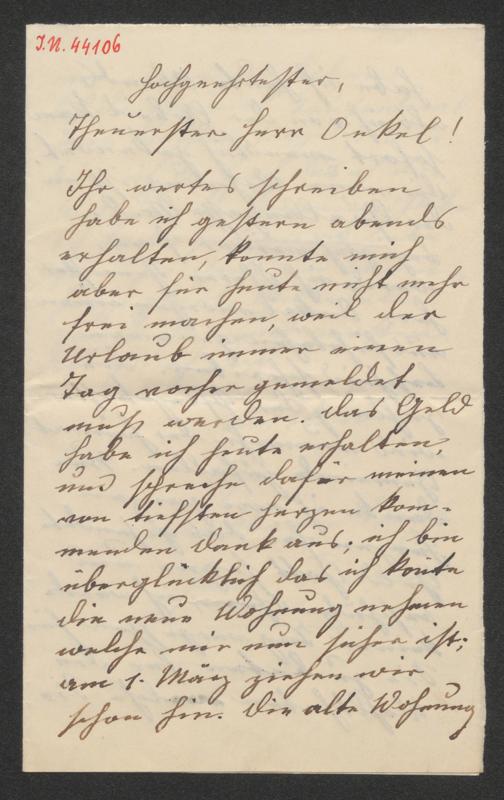 J.N. 44106
Hochgeehrtester,
Theuerster Herr Onkel!
Ihr wertes schreiben
habe ich gestern abends
erhalten, konnte mich
aber für heute nicht mehr
frei machen, weil der
Urlaub immer einen
Tag vorher gemeldet
muß werden. Das Geld
habe ich heute erhalten,
und spreche dafür meinen
von tiefsten herzen kom-
menden Dank aus; ich bin
überglücklich das ich konte
die neue Wohnung nehmen
welche mir nun sicher ist;
am 1. März ziehen wir
schon hin. Die alte Wohnung